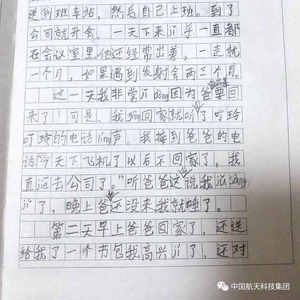 送到班车站，然后自己上班。到了
公司就开会。一天下来jī乎一直都
在会议室里。他还经常出差，一走就
一个月，如果遇到发射会两三个月。
这一天我非常jī dòng因为爸爸要回
来了！可是，我回家就听了叮玲
叮玲的电话líng声。我接到爸爸的电
话“今天下飞机了以后不回家了，我
直河去公司了。”听爸爸这说我
jī了，晚上爸还没来我就睡了。
第二天早上爸爸回家了，还送
给我了一个书包我高兴jī了，还对
中国航天科技集团